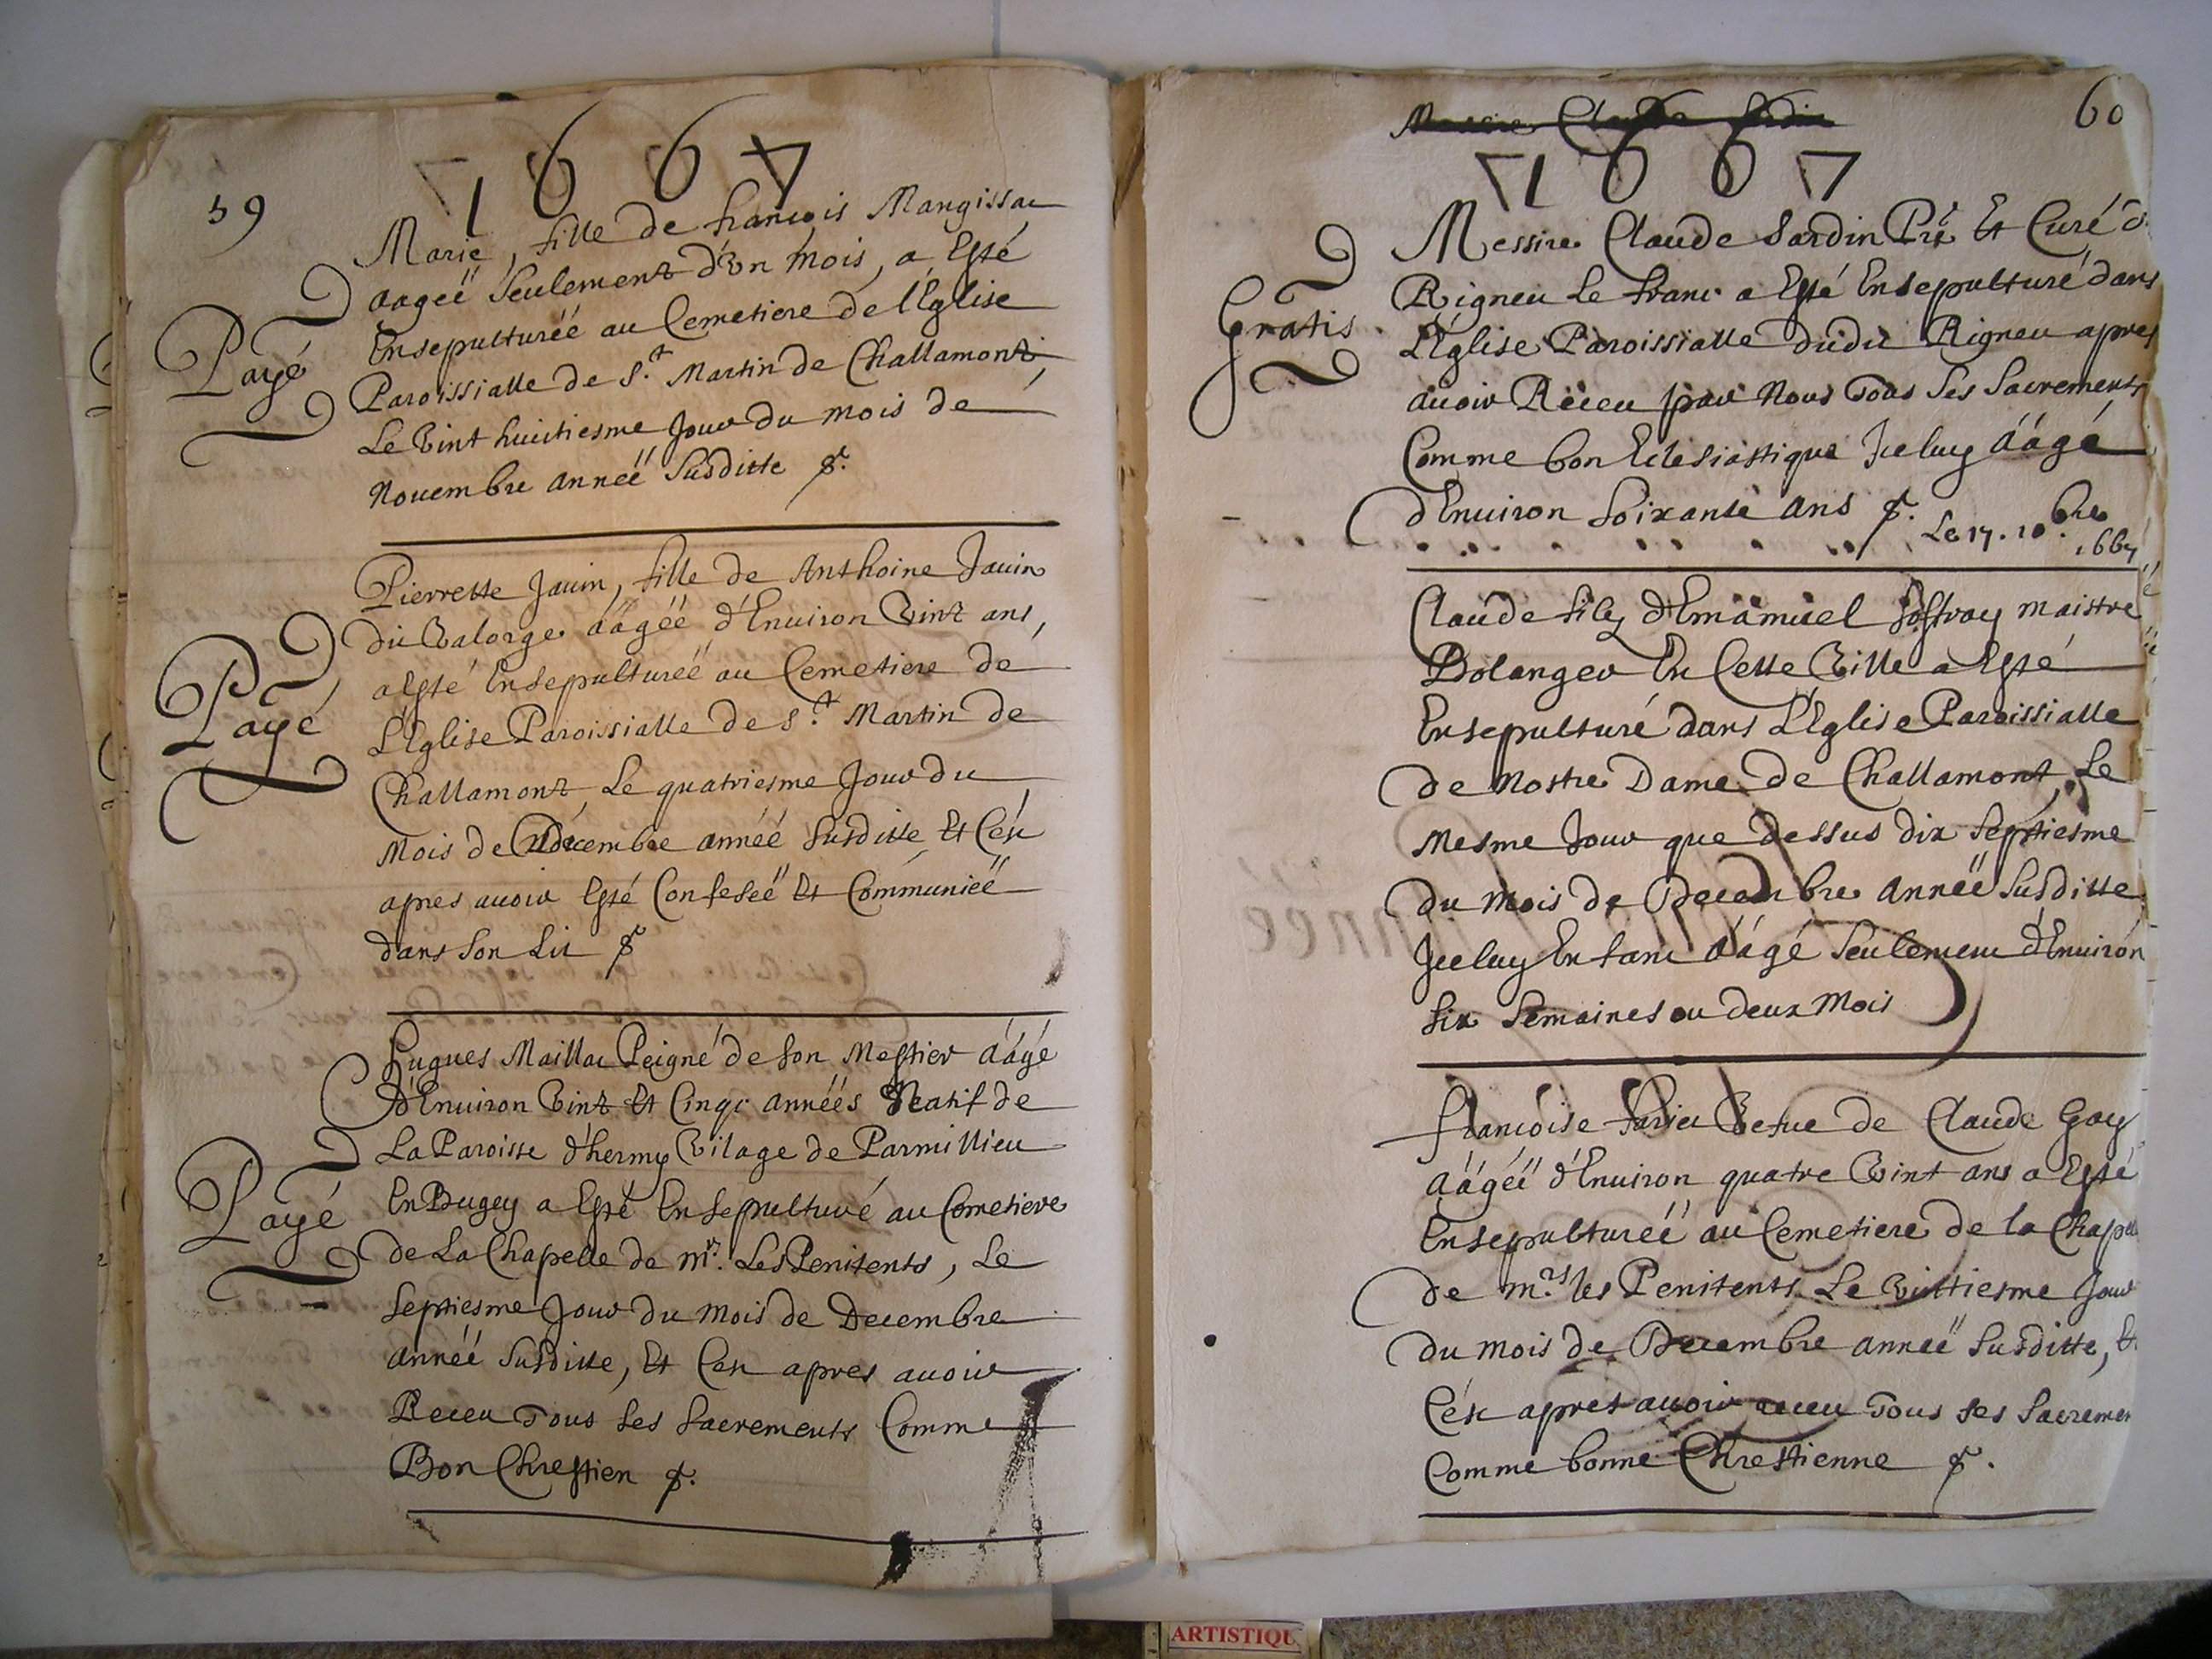 59
1667
Marie, fille de francois Mangissac
aageë Seulement d'vn mois, a Esté
Ensepulturéé au Cemetiere de l'Eglise
Payé
Paroissialle de S.t Martin de Challamont
Le vint huictiesme Jour du mois de
Nouembre anneë Susditte &.
Pierrette Jauin, fille de Anthoine Jauin
du Valorge ààgéé d'Enuiron vint ans,
a Esté Ensepultureë au Cemetiere de
Payé
L'Eglise Paroissialle de S.t Martin de
Challamont, Le quatriesme Jour du
Mois de Decembre annéé Susditte Et Cést
apres auoir Esté Confeseë Et Communieë
dans Son Lit &
hugues Maillac Peigné de Son Mestier ààgé
d'Enuiron vint Et Cinqc annéés Neatif de
La Paroisse d'hermy Vilage de Parmillieu
Payé
En Bugey a Esté Ensepulturé au Cemetiere
de La Chapelle de m.rs Les Penitents, Le
Septiesme Jour du Mois de Decembre
annéé Susditte, Et Cest apres auoir
Receu Tous Ses Sacrements Comme
Bon Chrestien &.
60
Messire Claude Sardin
1667
Messire Claude Sardin Prê Et Curé d
Rigneu le franc a Esté Ensepulturé dans
Gratis
L'Eglise Paroissialle dudit Rigneu apres
auoir Reçeu par Nous Tous Ses Sacrements
Comme bon Eclesiastique Iceluy ààgé
d'Enuiron Soixante ans &. Le 17. 10.bre
1667
Claude fils d'Emamuel Joffray maistre
Bolanger En Cette Ville a Esté
Ensepulturé dans L'Eglise Paroissialle
de Nostre Dame de Challamont, Le
Mesme Jour que dessus dix Septiesme
du Mois de Decembre anneë Susditte
Iceluy Enfant ààgé Seulement d'Enuiron
Six Semaines ou deux Mois
francoise Vefue de Claude Gay
ààgéë d'Enuiron quatre vint ans a Esté
Ensepulturéé au Cemetiere de la Chapelle
de m.rs les Penitents Le vintiesme Jour
du mois de Decembre anneë Susditte, Et
Cést apres auoir receu Tous Ses Sacremen
Comme bonne Chrestienne &.
ARTISTIQU